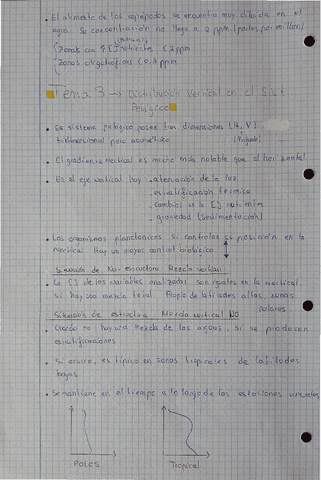 • El alimento de los copépodos se encuentra muy diluido en el
agua. Su concentración no llega a 2 ppm (partes por millón)
Zonas con ↑[] nutrientes < 2 ppm
Zonas oligotróficas < 0,1 ppm
Tema 3 → Distribución Vertical en el Sist.
Pelágico
• El sistema pelágico posee dos dimensiones (H, V)
bidimensional pero asimétrico
• El gradiente vertical es mucho más notable que el horizontal
• En el eje vertical hay - atenuación de la luz
- estratificación térmica
- cambios en la [] nutrientes
- gravedad (Sedimentación)
• Los organismos planctónicos sí controlan su posición en la
vertical. Hay un mayor control biológico
Situación de No-estructura Mezcla vertical
• La [] de las variables analizadas son iguales en la vertical
si hay una mezcla total. Propio de latitudes altas, zonas
polares.
Situación de estructura Mezcla vertical NO
• Cuando no hay una mezcla de las aguas, sí se producen
estratificaciones
• Si ocurre, es típico en zonas tropicales de latitudes
bajas
• Se mantiene en el tiempo a lo largo de las estaciones
POLOS
Tropical